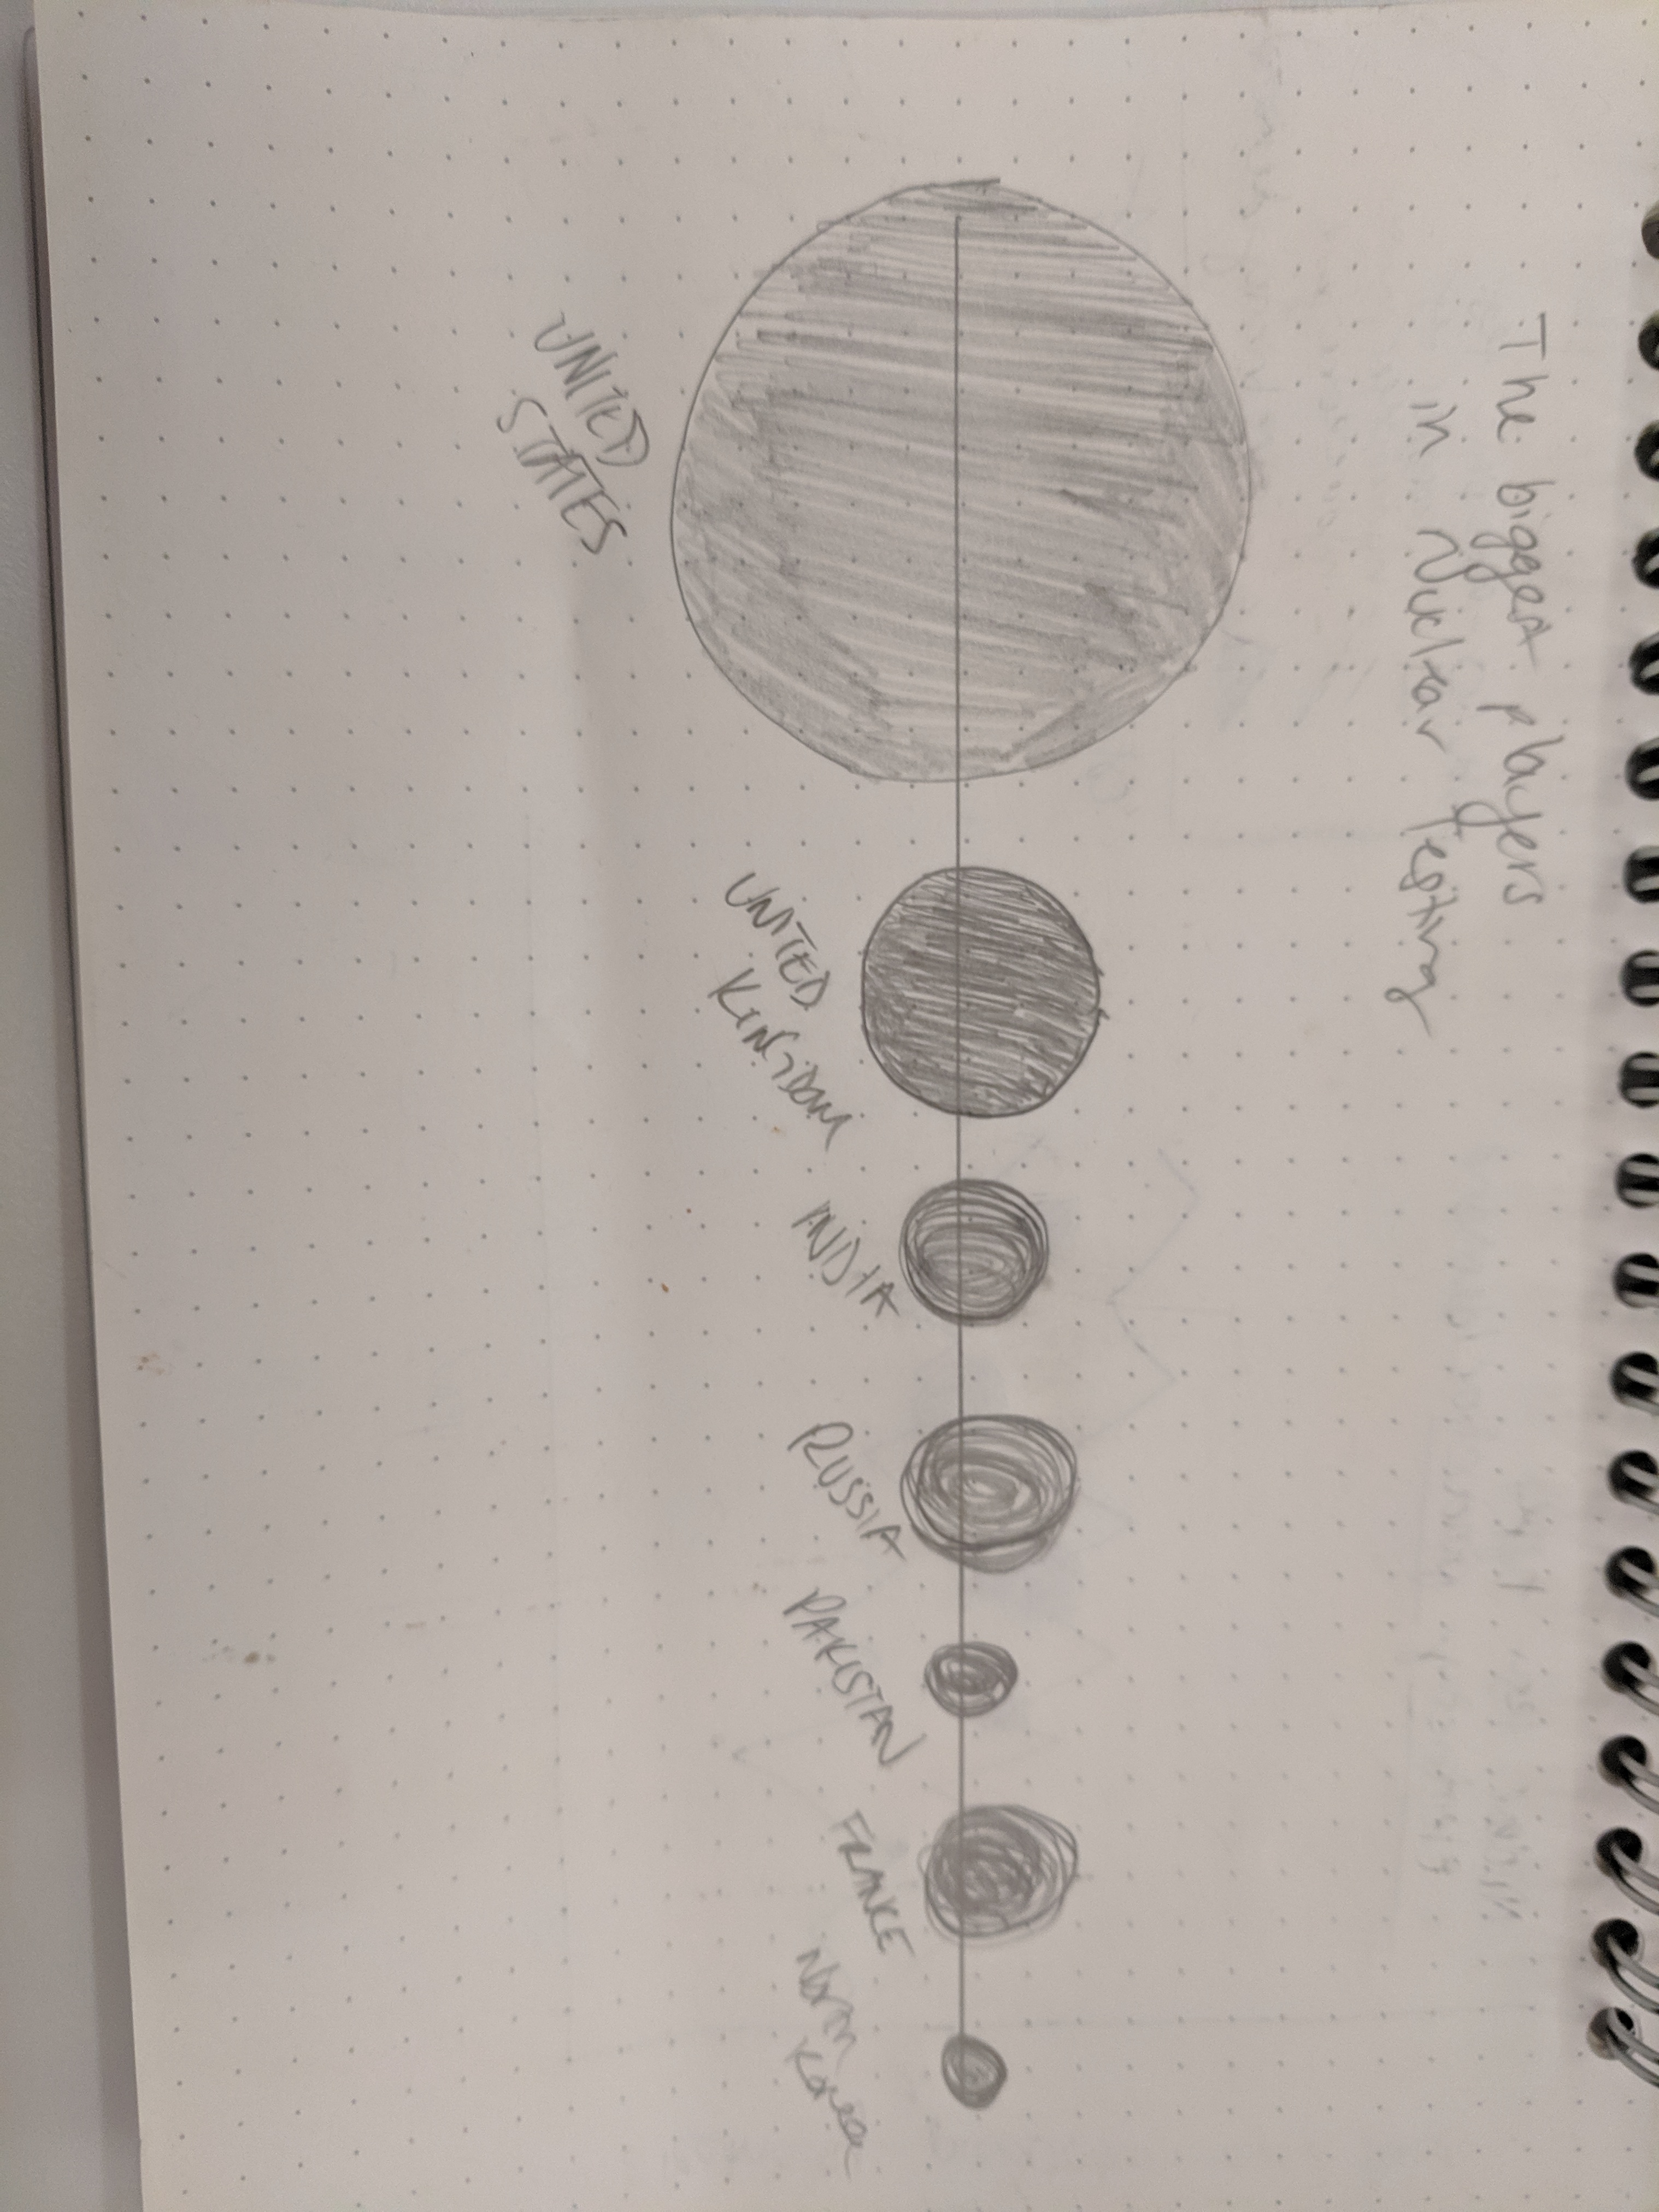 The biggest players
in Nuclear Testing
UNITED
STATES
UNITED
KINGDOM
INDIA
RUSSIA
PAKISTAN
FRANCE
North
Korea